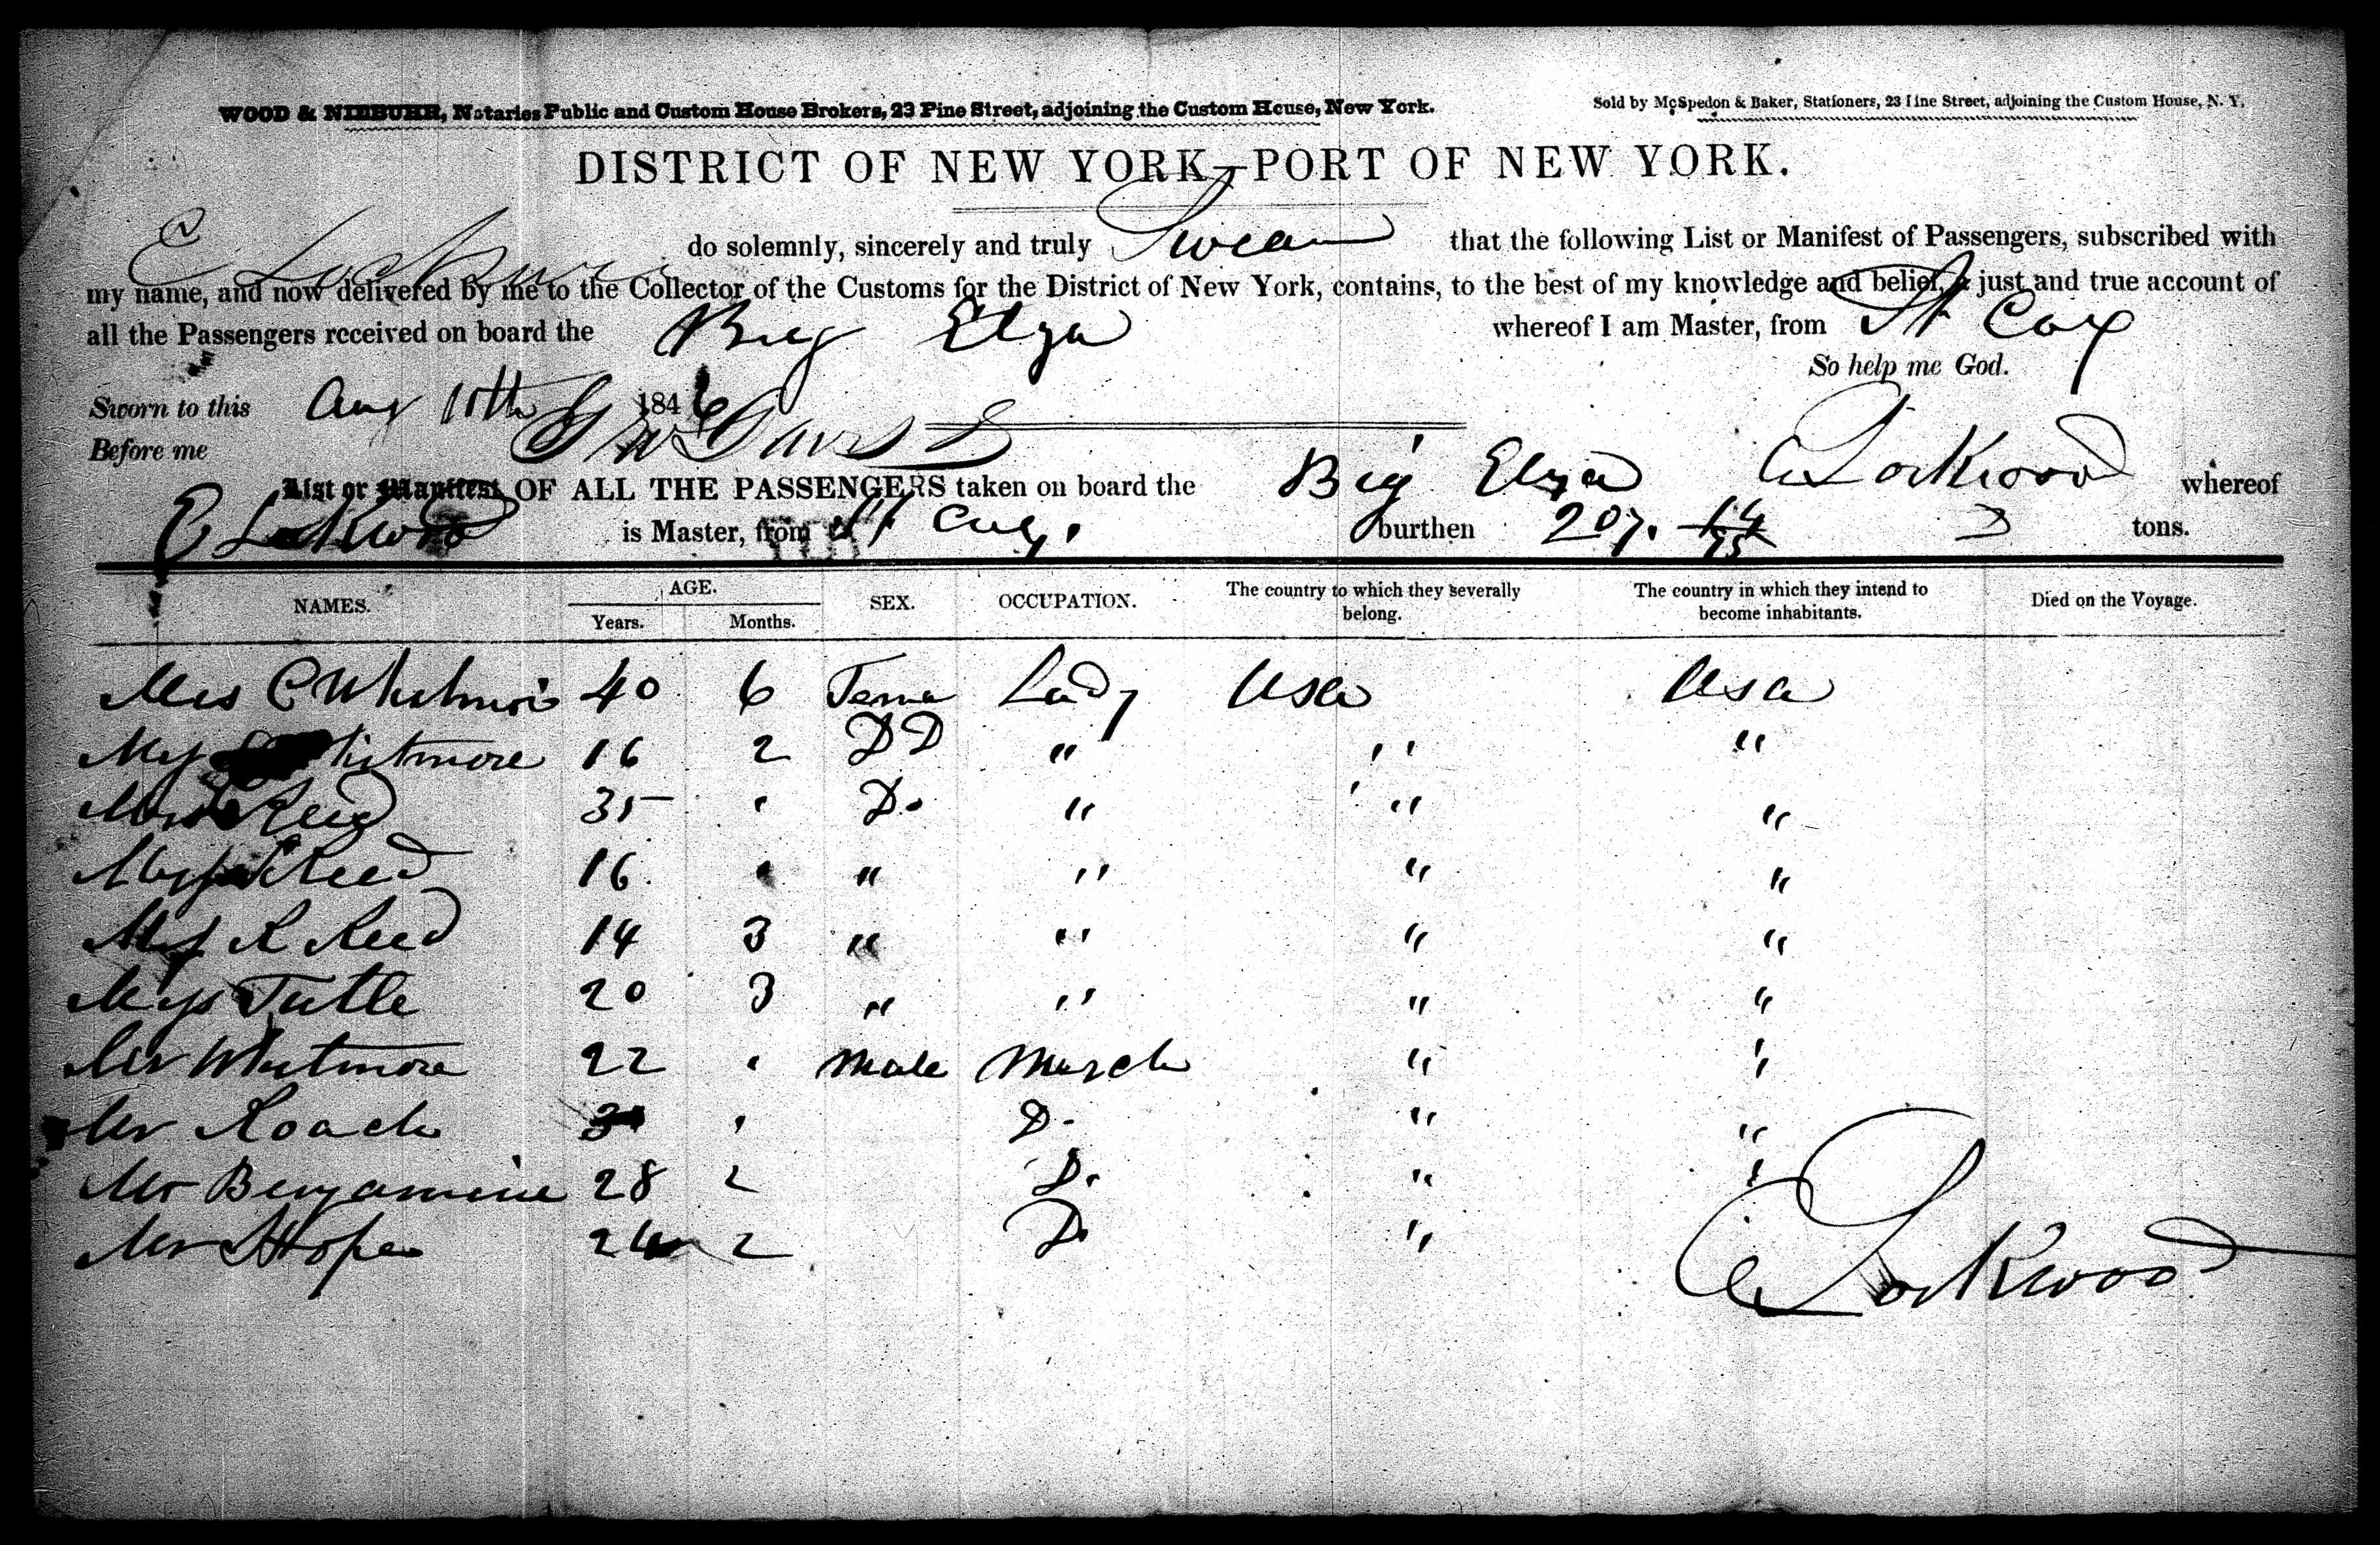 WOOD & NIEBUHR, Notaries Public and Custom House Brokers, 23 Pine Street, adjoining the Custom House, New York.
Sold by McSpedon & Baker, Stationers, 23 Pine Street, adjoining the Custom House, N. Y.
DISTRICT OF NEW YORK—PORT OF NEW YORK.
E Lockwood do solemnly, sincerely and truly Swear that the following List or Manifest of Passengers, subscribed with
my name, and now delivered by me to the Collector of the Customs for the District of New York, contains, to the best of my knowledge and belief, a just and true account of
all the Passengers received on board the Brig Elza whereof I am Master, from St Cox
So help me God.
Sworn to this Aug 10th 1846
Before me
List or Manifest OF ALL THE PASSENGERS taken on board the Brig Elza E Lockwood whereof
E Lockwood is Master, from St burthen 207. tons.
NAMES. AGE. SEX. OCCUPATION. The country to which they severally belong. The country in which they intend to become inhabitants. Died on the Voyage.
Years. Months.
Mrs C Whitmore 40 6 Fema Lady Usa Usa
Miss Whitmore 16 2 DD " " "
Mrs Reed 35 " Do " " "
Miss Reed 16 " " " " "
Miss R Reed 14 3 " " " "
Miss Tutle 20 3 " " " "
Mr Whitmore 22 " Male March " "
Mr Roach " D. " "
Mr Benjamine 28 2 D. " "
Mr Hope 2 D. "
E Lockwood